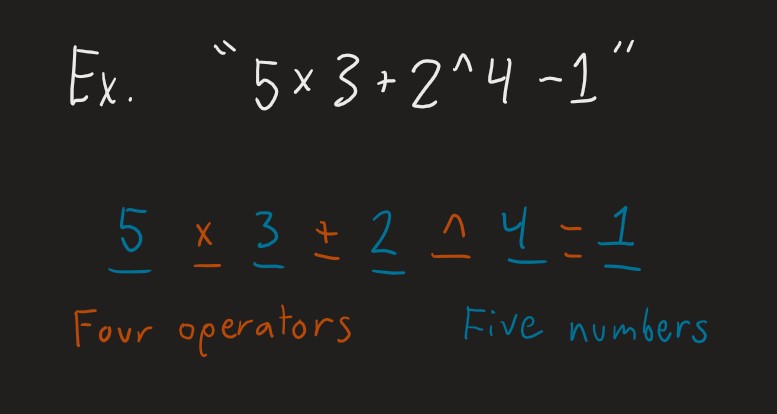 Ex. "5×3+2^4-1"
5 × 3 + 2 ^ 4 - 1
Four operators Five numbers